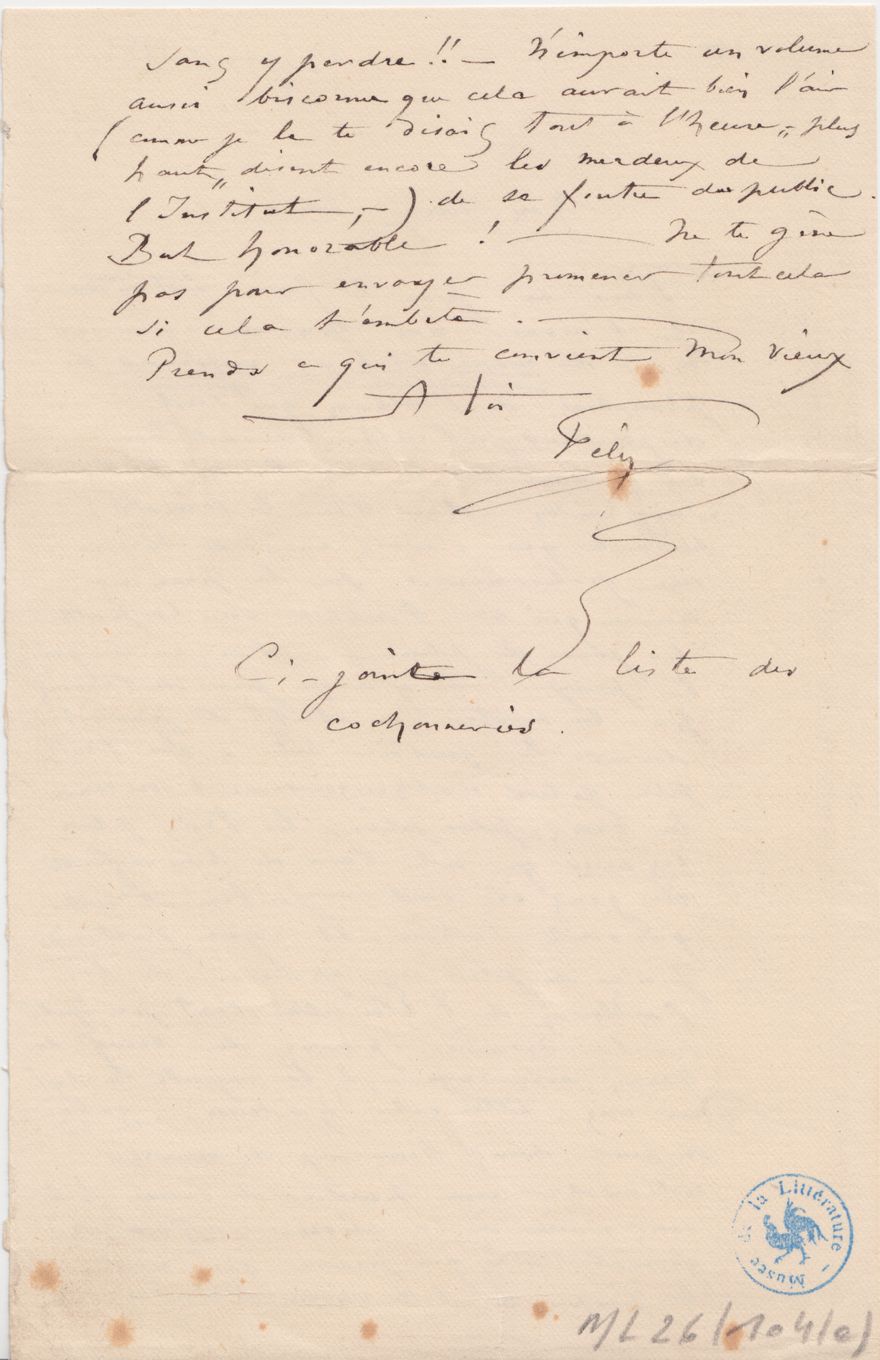 sans y perdre !! — N'importe un volume
aussi biscornu que cela aurait bien l'air
(comme je le te disais tout à l'heure „ plus
haut „ disent encore les merdeux de
l'Institut, —) de se foutre du public.
But honorable ! — Ne te gêne
pas pour envoyer promener tout cela
si cela t'embête. —
Prends ce qui te convient mon vieux
A toi
Fély
Ci-jointe la liste des
cochonneries.
Musée de la Littérature -
ML 26/104/